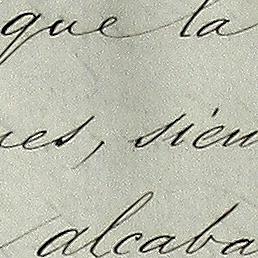 que la
nes, siem
alcaba